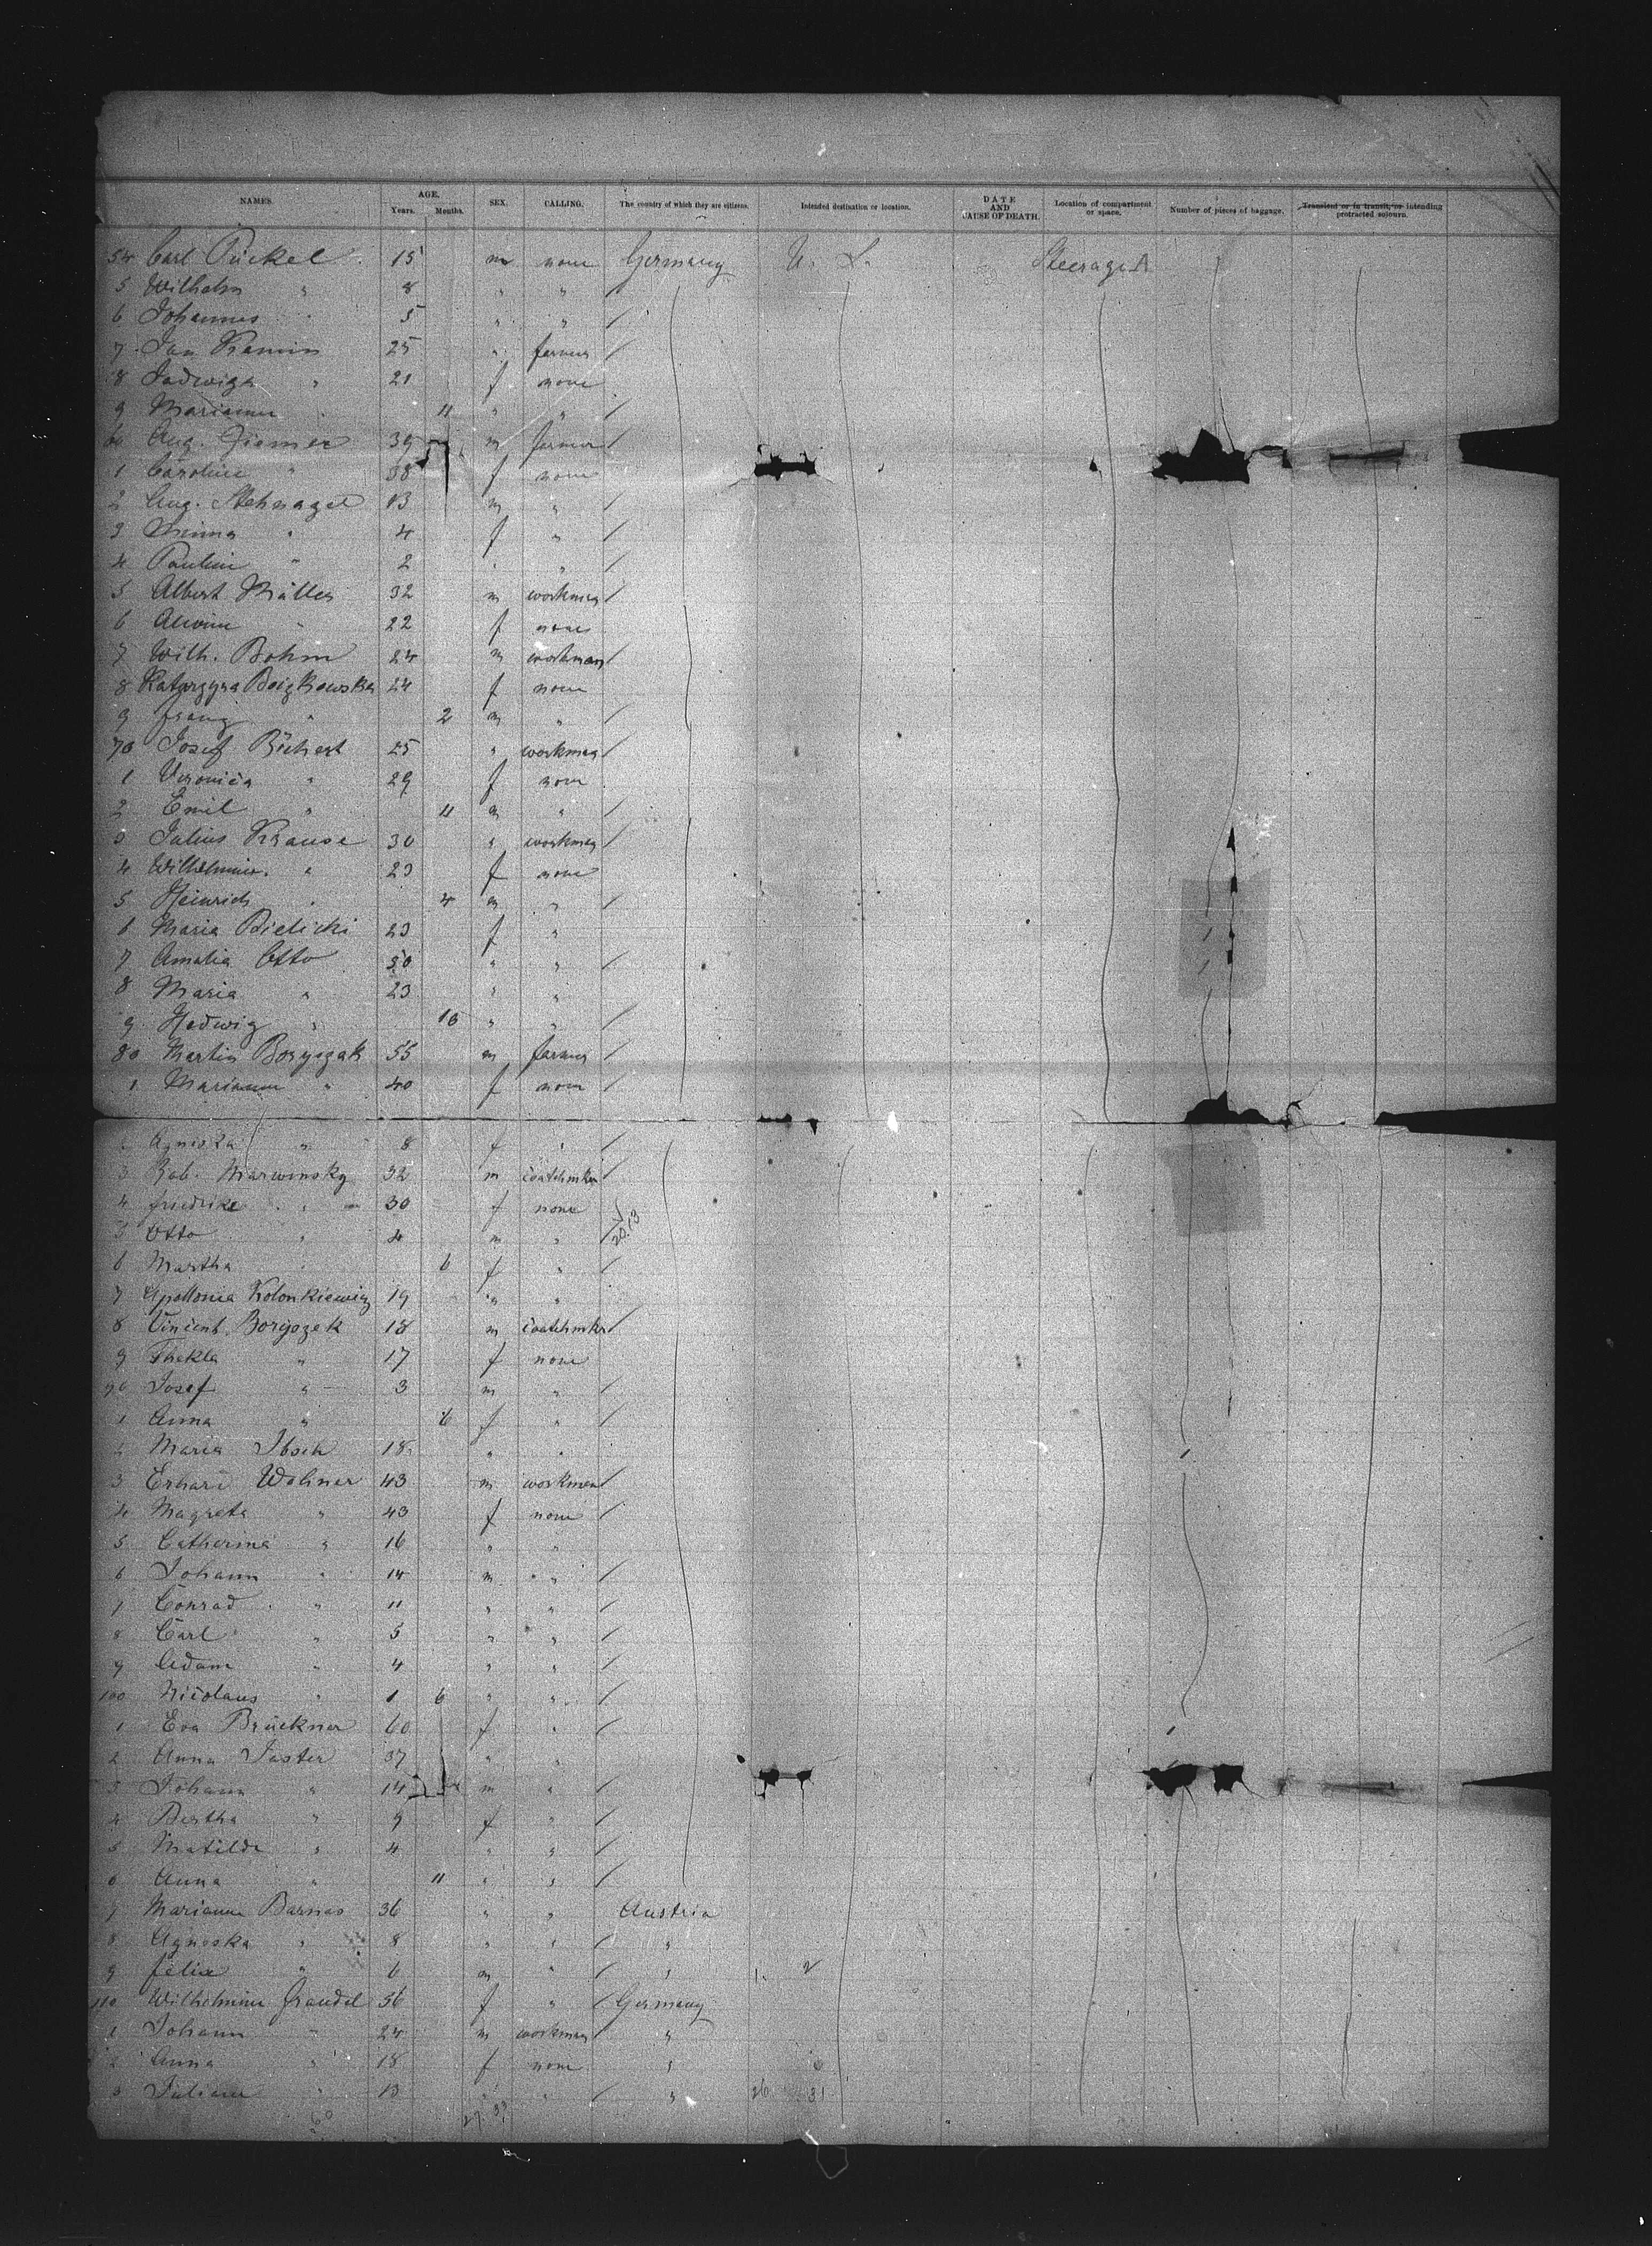 NAMES. AGE. Years. Months. SEX. CALLING. The country of which they are citizens. Intended destination or location. DATE AND CAUSE OF DEATH. Location of compartment or space. Number of pieces of baggage. Transient or in transit, or intending protracted sojourn.
54 Carl Pückel 15 m none Germany U. S. Steerage A
5 Wilhelm " 8 " "
6 Johannes " 5 " " /
7 Jan Kamin 25 " farmer /
8 Jadwiga " 21 f none
9 Marianne " 11 " " /
60 Aug. Ziemer 39 m farmer /
1 Caroline " 38 f none
2 Aug. Stehnagel 13 m " /
3 Minna " 4 f " /
4 Pauline " 2 " " /
5 Albert Müller 32 m workman /
6 Alwine " 22 f none
7 Wilh. Bohm 24 m workman /
8 Katarzyna 24 f none
9 Franz " 2 m " /
70 Josef Richert 25 " workman /
1 Veronica " 29 f none
2 Emil " 11 m " /
3 Julius Krause 30 " workman /
4 Wilhelmine " 23 f none
5 Heinrich " 4 m " /
6 Maria Bielicki 23 f "
7 Amalia Otto 50 " " /
8 Maria " 23 " "
9 Hedwig " 10 " " /
80 Martin Boryszak 55 m farmer /
1 Marianne " 40 f none /
2 Agniska " 8 f " /
3 Rob. Marwinsky 32 m /
4 Friedrike " 30 f none
5 Otto " 4 m " /
6 Martha " 6 f " /
7 Apollonia Kolonkiewicz 19 " "
8 Vincent Boryszek 18 m /
9 Thekla " 17 f none
90 Josef " 3 m " /
1 Anna " 6 f " /
2 Maria 18 " "
3 Erhard Wohner 43 m workman /
4 Magreta " 43 f none /
5 Catherina " 16 " "
6 Johann " 14 m " /
7 Conrad " 11 " " /
8 Carl " 5 " " /
9 Adam " 4 " " /
100 Nicolaus " 1 6 " " /
1 Eva Brückner 60 f " /
2 Anna Jaster 37 " "
3 Johann " 14 m " /
4 Bertha " 9 f " /
5 Matilde " 4 " " /
6 Anna " 11 " " /
7 Marianne Barnas 36 " " Austria
8 Agnoska " 8 " " / "
9 Felix " 6 m " / "
110 Wilhelmine Graudel 56 f " / Germany
1 Johann " 24 m workman / "
2 Anna " 18 f none "
3 Juliane " 13 " " / "